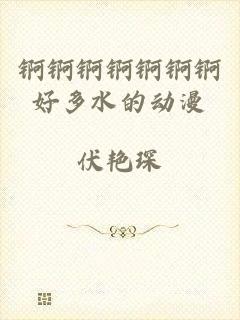 锕锕锕锕锕锕锕
好多水的动漫
伏艳琛